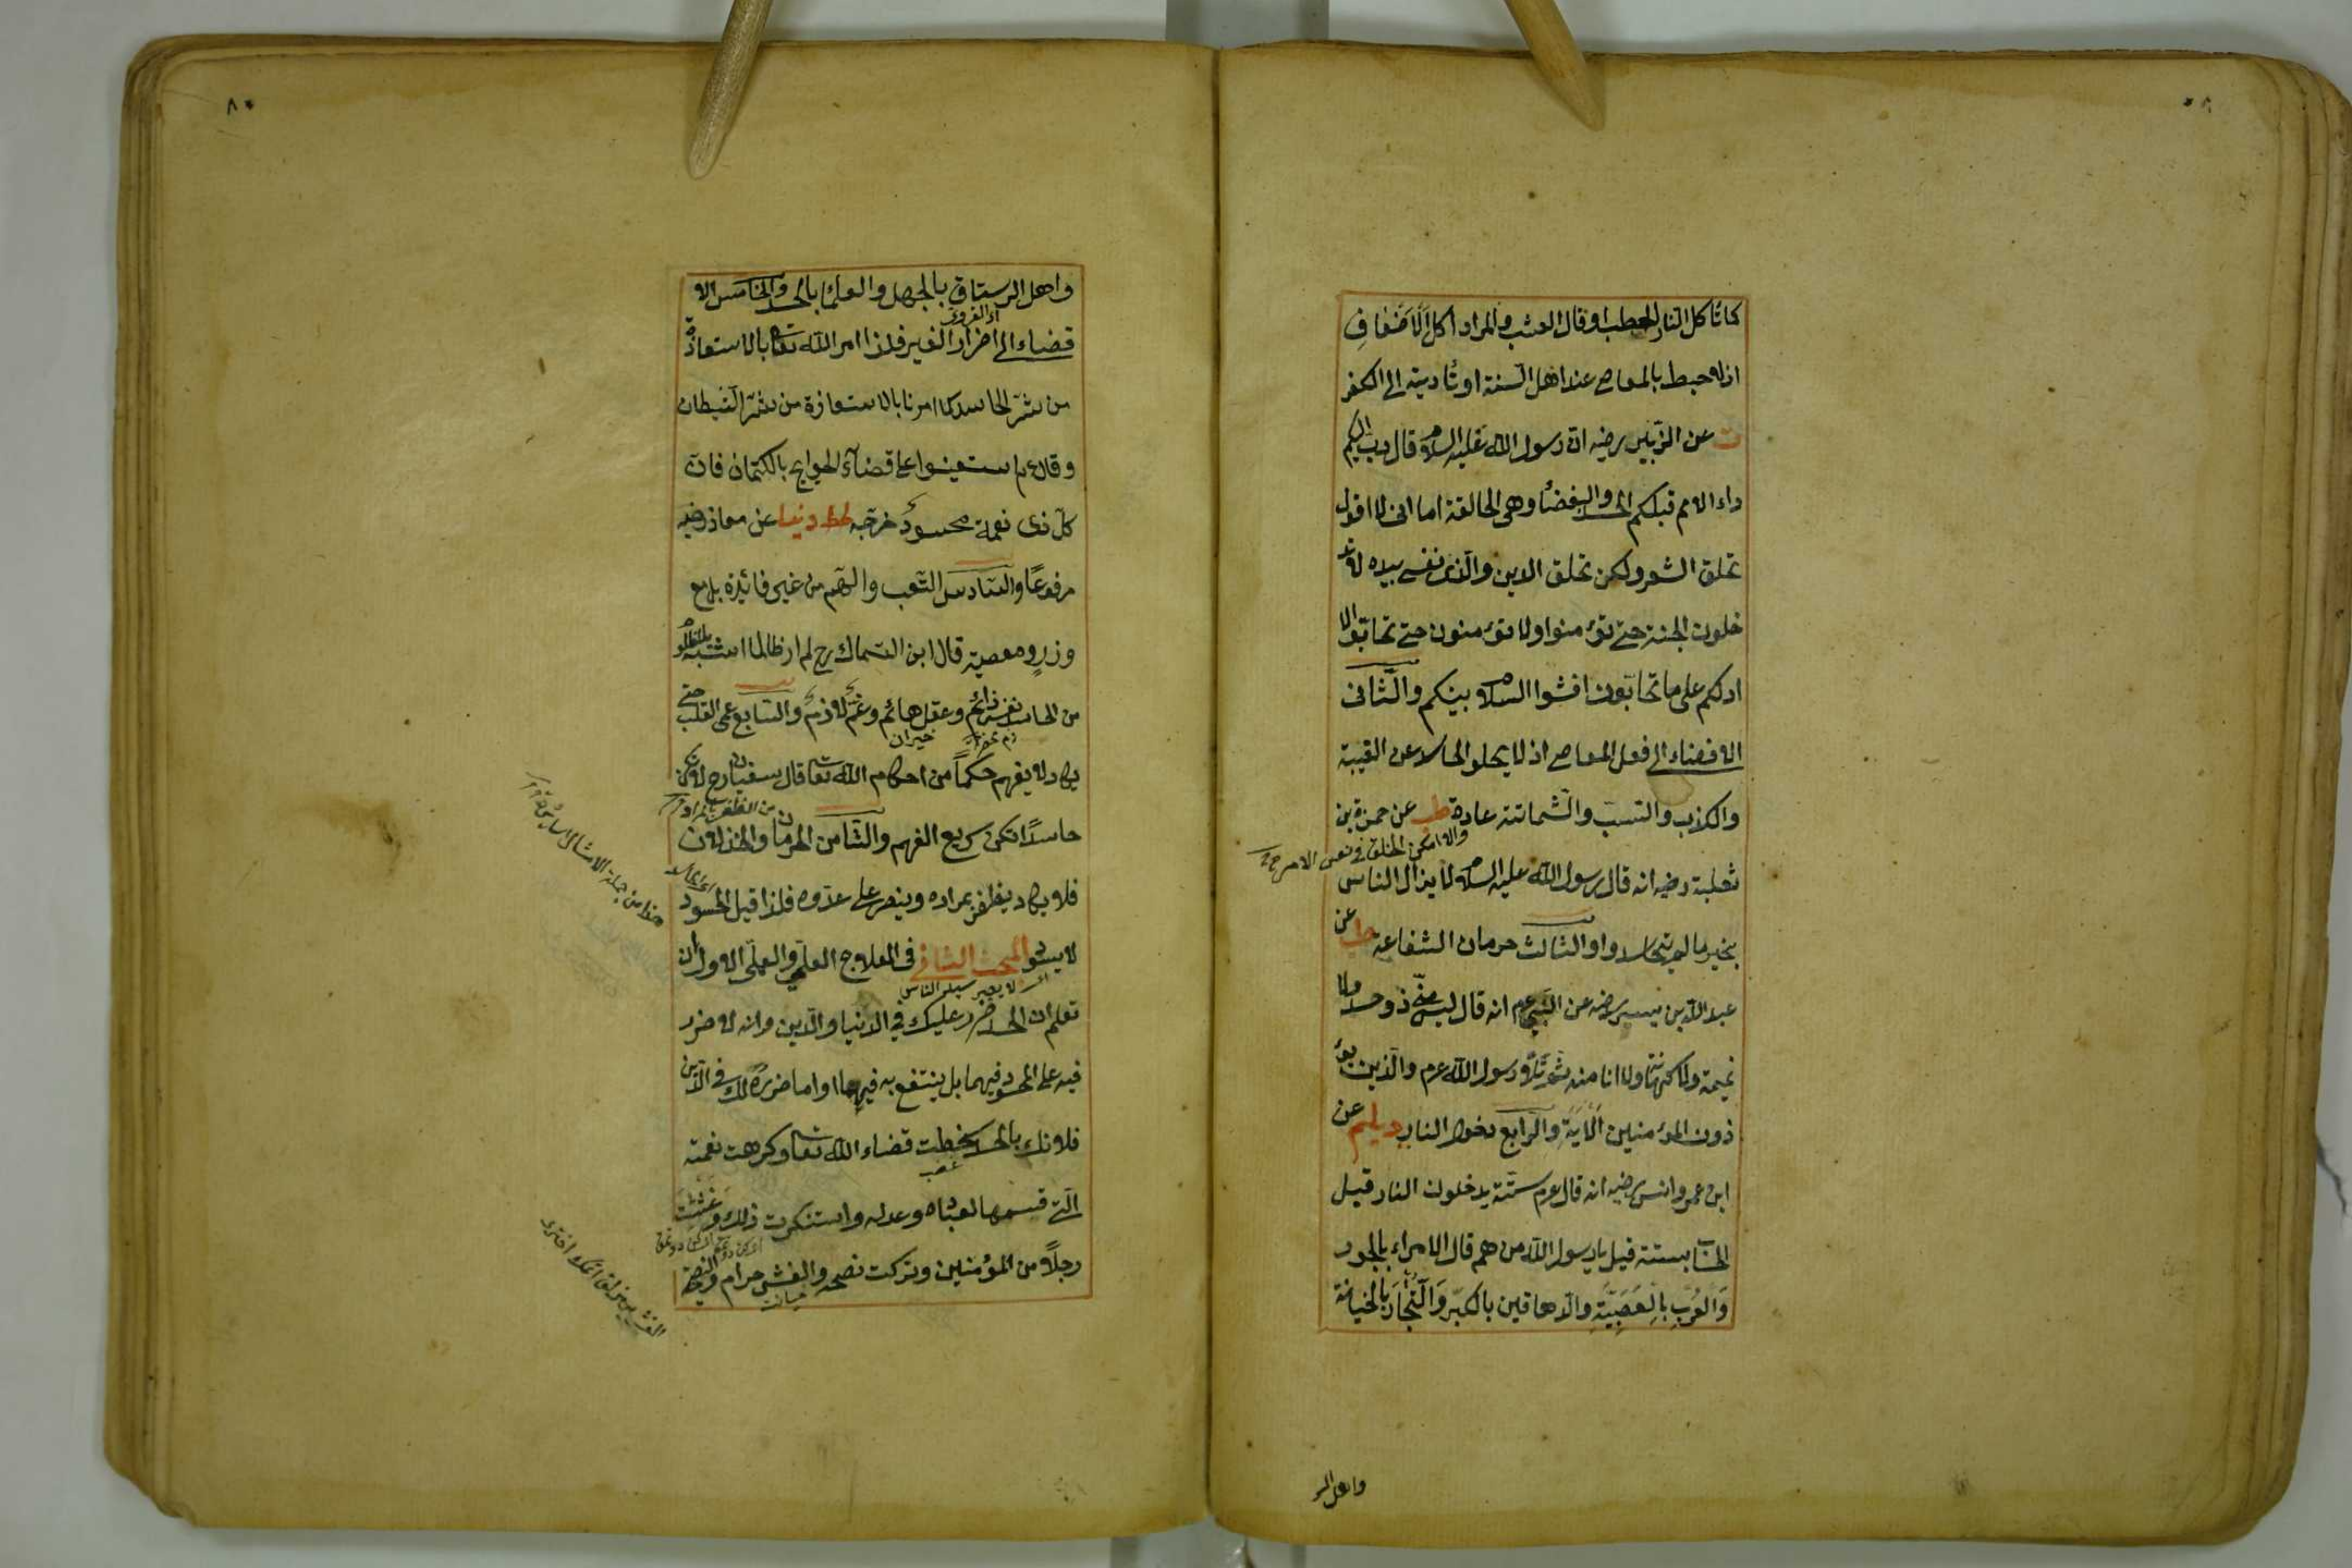 كما تأكل النار الحطب او قال العشب والمراد اكل الاضعاف
اذ لا حبط بالمعاصى عند اهل السنة او تأديته الى الكفر
ت عن الزبير رضيه ان رسول الله عليه السلام قال دب اليكم
داء الامم قبلكم الحسد والبغضاء وهى الحالقة اما انى لا اقول
تحلق الشعر ولكن تحلق الدين والذى نفسى بيده لا تد
خلون الجنة حتى تؤمنوا ولا تؤمنون حتى تحابوا الا
ادلكم على ما تحابون افشوا السلام بينكم والثانى
الافضاء الى فعل المعاصى اذ لا يخلو الحاسد عن الغيبة
والكذب والسب والشماتة عادة طب عن حمزة بن
ثعلبة رضيه انه قال رسول الله عليه السلام لا يزال الناس
بخير ما لم يتحاسدوا والثالث حرمان الشفاعة طب عن
عبد الله بن بسر رضه عن النبى عم انه قال ليس منى ذو حسد ولا
نميمة ولا كهانة ولا انا منه ثم تلا رسول الله عم والذين يؤ
ذون المؤمنين الآية والرابع دخول النار ديلم عن
ابن عمر وانس رضيه انه قال عم ستة يدخلون النار قبل
الحساب بستة قيل يا رسول الله من هم قال الامراء بالجور
والعرب بالعصبية والدهاقين بالكبر والتجار بالخيانة
واهل الر
٨٠
واهل الرستاق بالجهل والعلماء بالحسد والخامس الا
قضاء الى اضرار الغير فلذا امر الله تعا بالاستعاذة
من شر الحاسد كما امرنا بالاستعاذة من شر الشيطان
وقال عم استعينوا على قضاء الحوايج بالكتمان فان
كل ذى نعمة محسود خرجه طط دنيا عن معاذ رضيه
مرفوعا والسادس التعب والهم من غير فائدة بل مع
وزر ومعصية قال ابن السماك رح لم ار ظالما اشبه بالمظلوم
من الحاسد نفس دائم وعقل هائم وغم لازم والسابع عمى القلب حتى
يكاد لا يفهم حكما من احكام الله تعا قال سفيان رح لا تكن
حاسدا تكن سريع الفهم والثامن الحرمان والخذلان
فلا يكاد يظفر بمراده وينصر على عدوه فلذا قيل الحسود
لا يسود المبحث الثانى فى العلاج العلمى والعملى الاول ان
تعلم ان الحسد ضرر عليك فى الدنيا والدين وانه لا ضرر
فيه على المحسود فيهما بل ينتفع به فيهما اما ضرره لك فى الدين
فلانك بالحسد سخطت قضاء الله تعا وكرهت نعمته
التى قسمها لعباده وعدله واستنكرت ذلك وغششت
رجلا من المؤمنين وتركت نصحه والغش حرام والنصيحة